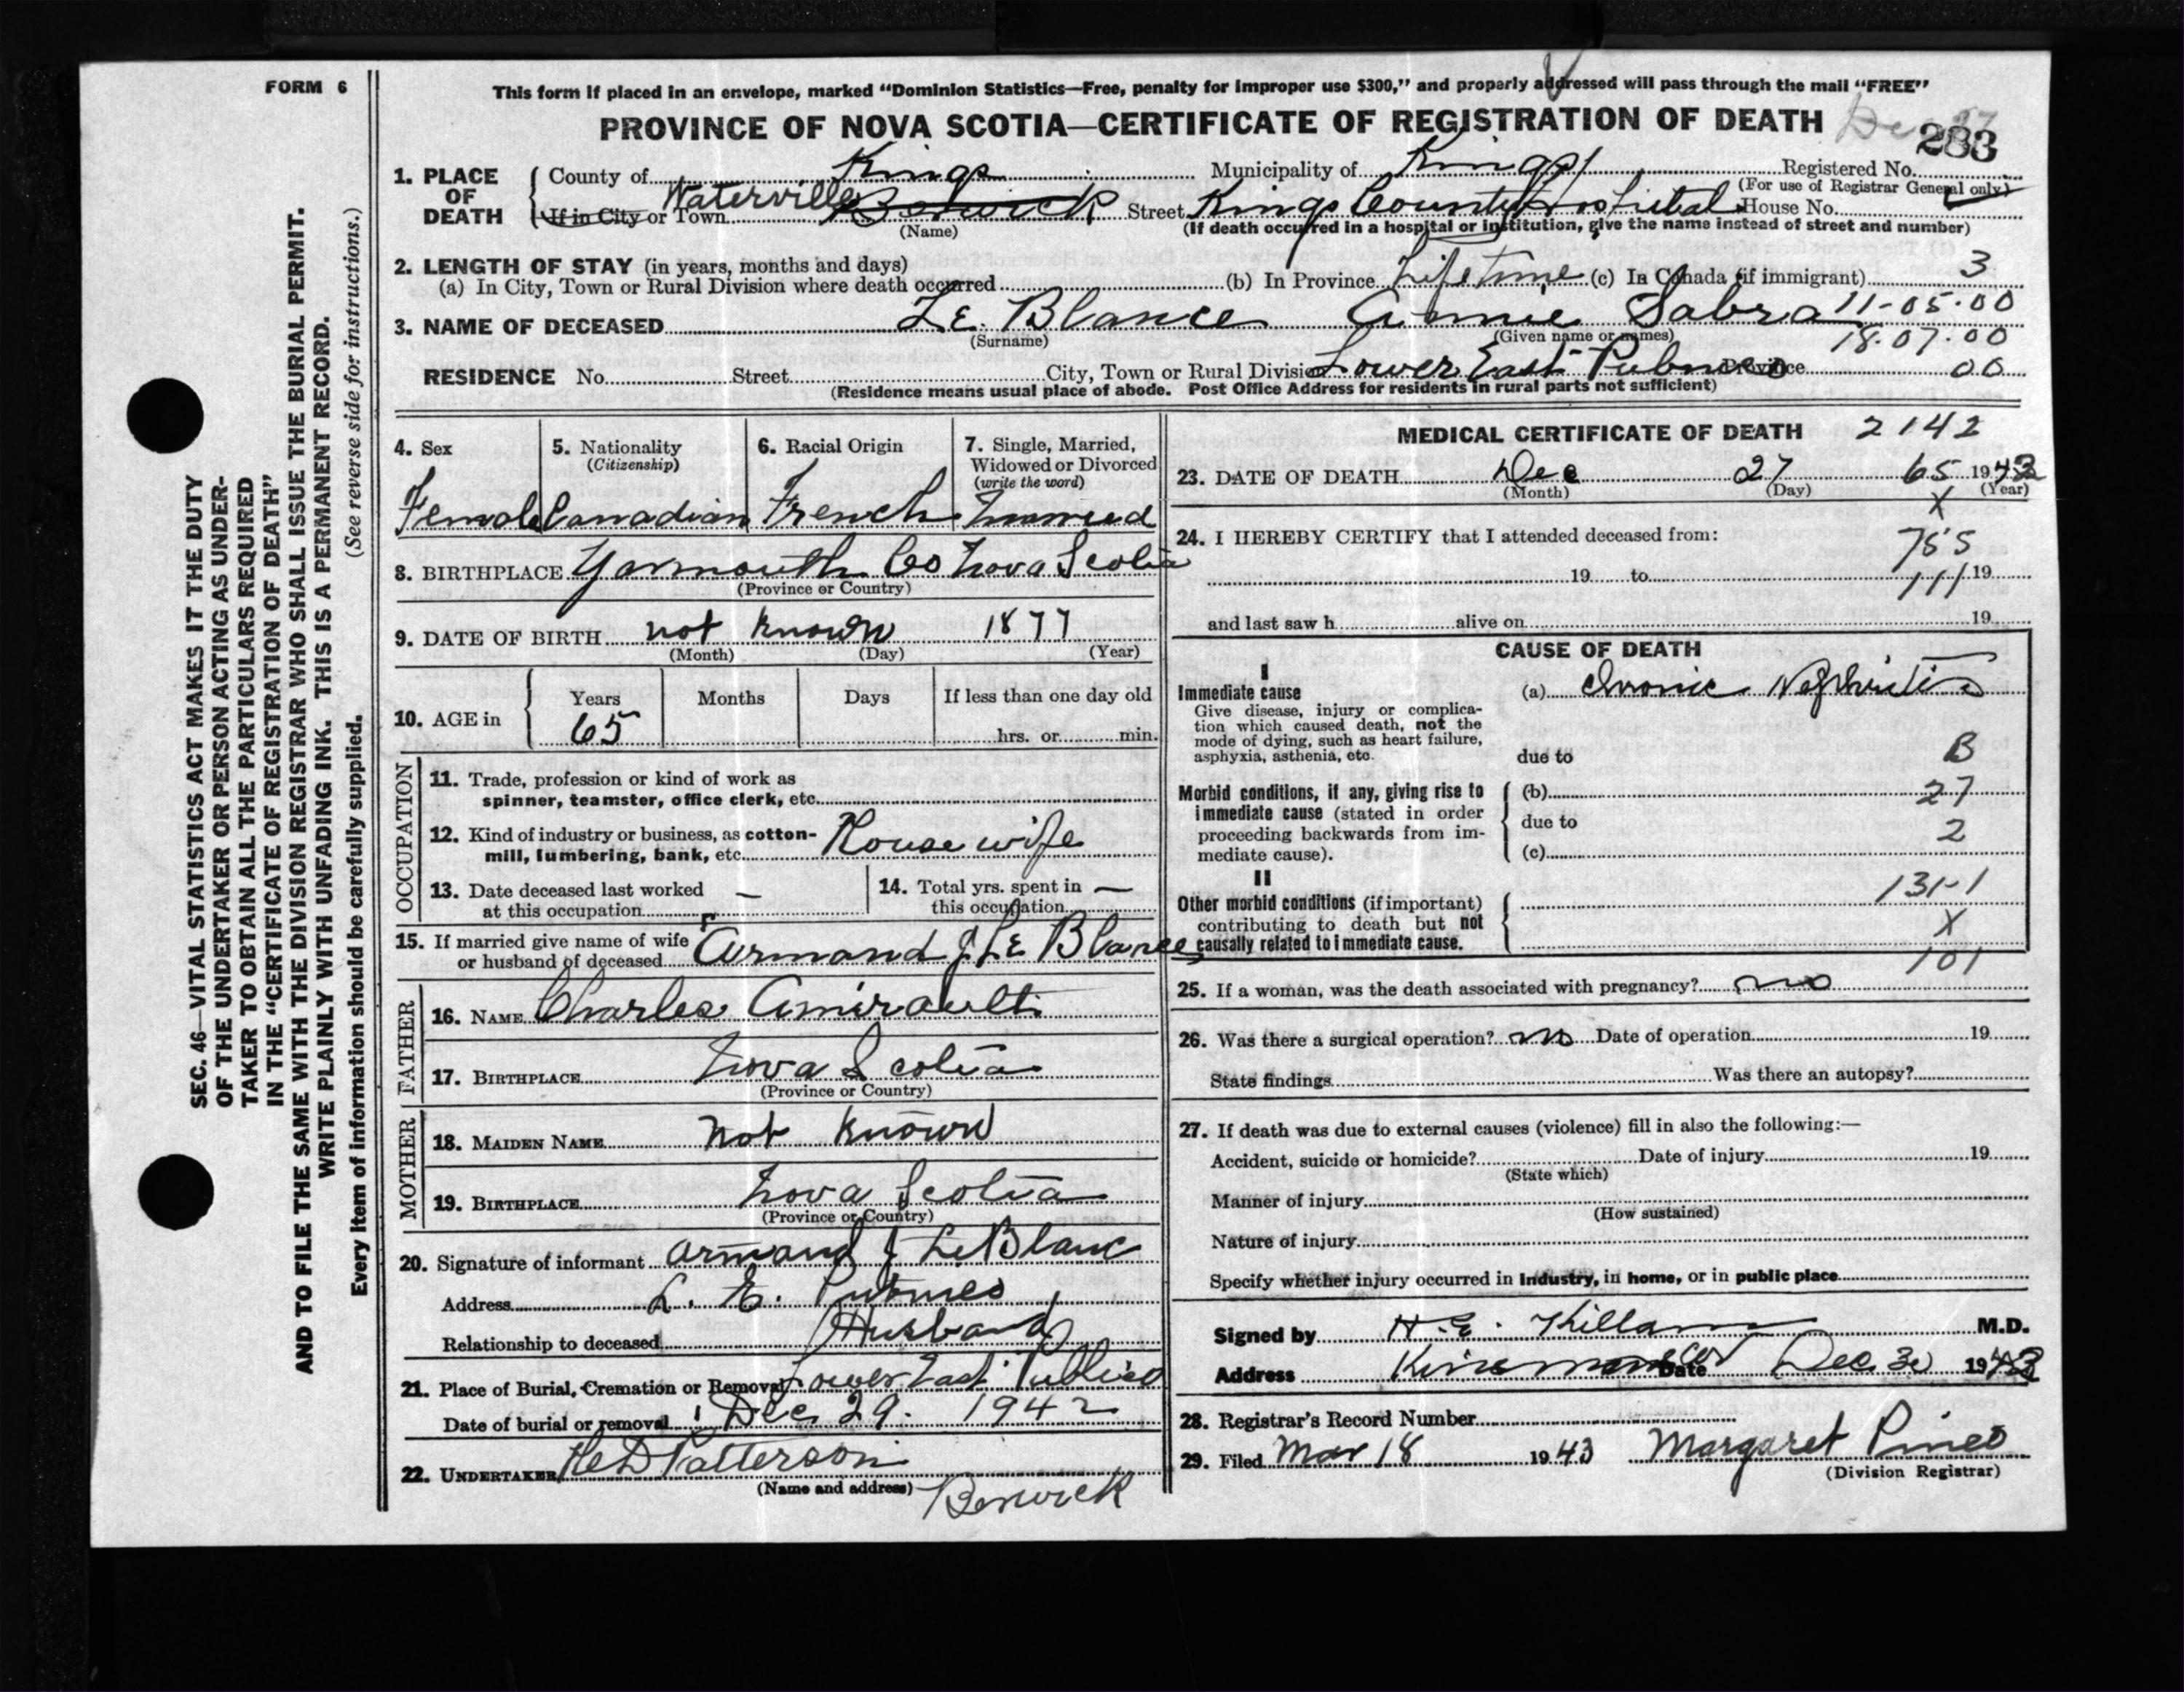 FORM 6
This form if placed in an envelope, marked “Dominion Statistics—Free, penalty for improper use $300,” and properly addressed will pass through the mail “FREE”
PROVINCE OF NOVA SCOTIA—CERTIFICATE OF REGISTRATION OF DEATH
283
1. PLACE OF DEATH { County of Kings Municipality of Kings Registered No.
(For use of Registrar General only)
If in City or Town Waterville Berwick Street Kings County Hospital House No.
(Name) (If death occurred in a hospital or institution, give the name instead of street and number)
2. LENGTH OF STAY (in years, months and days)
(a) In City, Town or Rural Division where death occurred (b) In Province Life time (c) In Canada (if immigrant) 3
11-05-00
3. NAME OF DECEASED Le Blance Annie Sabra
(Surname) (Given name or names) 18-07-00
RESIDENCE No. Street City, Town or Rural Division Lower East Pubnico Province 00
(Residence means usual place of abode. Post Office Address for residents in rural parts not sufficient)
SEC. 46—VITAL STATISTICS ACT MAKES IT THE DUTY
OF THE UNDERTAKER OR PERSON ACTING AS UNDER-
TAKER TO OBTAIN ALL THE PARTICULARS REQUIRED
IN THE “CERTIFICATE OF REGISTRATION OF DEATH”
AND TO FILE THE SAME WITH THE DIVISION REGISTRAR WHO SHALL ISSUE THE BURIAL PERMIT.
WRITE PLAINLY WITH UNFADING INK. THIS IS A PERMANENT RECORD.
Every item of information should be carefully supplied. (See reverse side for instructions.)
4. Sex 5. Nationality (Citizenship) 6. Racial Origin 7. Single, Married, Widowed or Divorced (write the word)
Female Canadian French Married
8. BIRTHPLACE Yarmouth Co Nova Scotia
(Province or Country)
9. DATE OF BIRTH not known 1877
(Month) (Day) (Year)
10. AGE in { Years Months Days If less than one day old
65 hrs. or min.
OCCUPATION
11. Trade, profession or kind of work as
spinner, teamster, office clerk, etc.
12. Kind of industry or business, as cotton-
mill, lumbering, bank, etc. Housewife
13. Date deceased last worked — 14. Total yrs. spent in —
at this occupation this occupation
15. If married give name of wife
or husband of deceased Armand J. Le Blance
FATHER
16. NAME Charles Amirault
17. BIRTHPLACE Nova Scotia
(Province or Country)
MOTHER
18. MAIDEN NAME Not known
19. BIRTHPLACE Nova Scotia
(Province or Country)
20. Signature of informant Armand J LeBlanc
Address L. E. Pubnico
Relationship to deceased Husband
21. Place of Burial, Cremation or Removal Lower East Publico
Date of burial or removal Dec 29. 1942
22. UNDERTAKER Patterson
(Name and address) Berwick
MEDICAL CERTIFICATE OF DEATH 2142
23. DATE OF DEATH Dec 27 65 1942
(Month) (Day) (Year)
X
24. I HEREBY CERTIFY that I attended deceased from: 755
19 to 111 19
and last saw h alive on 19
CAUSE OF DEATH
I
Immediate cause (a) Chronic Nephritis
Give disease, injury or complica-
tion which caused death, not the
mode of dying, such as heart failure,
asphyxia, asthenia, etc. due to B
Morbid conditions, if any, giving rise to (b) 27
immediate cause (stated in order
proceeding backwards from im- due to 2
mediate cause). (c)
II 131-1
Other morbid conditions (if important)
contributing to death but not X
causally related to immediate cause.
101
25. If a woman, was the death associated with pregnancy? no
26. Was there a surgical operation? no Date of operation 19
State findings Was there an autopsy?
27. If death was due to external causes (violence) fill in also the following:—
Accident, suicide or homicide? Date of injury 19
(State which)
Manner of injury
(How sustained)
Nature of injury
Specify whether injury occurred in industry, in home, or in public place
Signed by H. E. Killam M.D.
Address Date Dec 30 19
28. Registrar’s Record Number
29. Filed Mar 18 1943 Margaret Pineo
(Division Registrar)